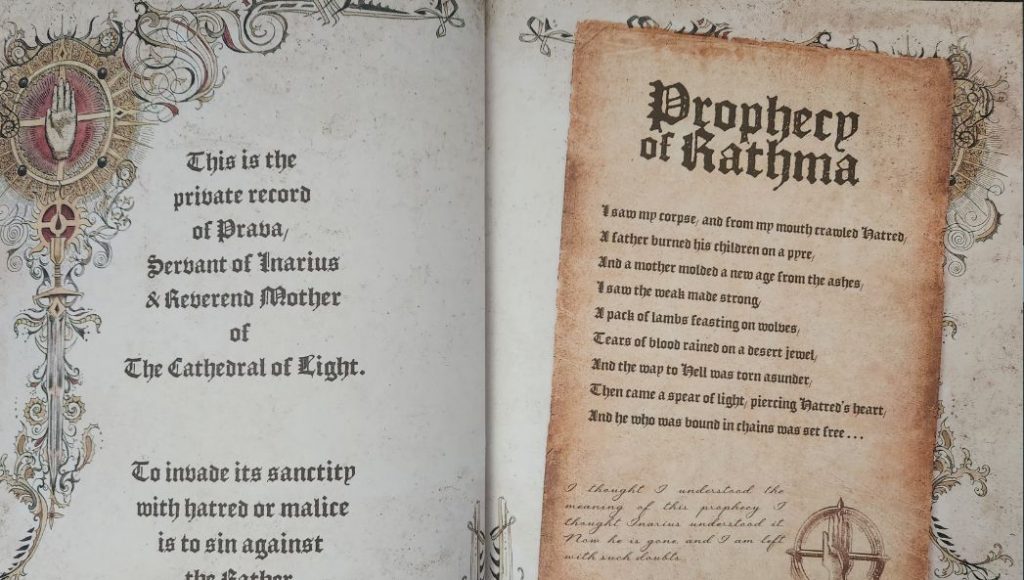 This is the
private record
of Prava,
Servant of Inarius
& Reverend Mother
of
The Cathedral of Light.
To invade its sanctity
with hatred or malice
is to sin against
the Father
Prophecy
of Rathma
I saw my corpse, and from my mouth crawled Hatred,
A father burned his children on a pyre,
And a mother molded a new age from the ashes,
I saw the weak made strong,
A pack of lambs feasting on wolves,
Tears of blood rained on a desert jewel,
And the way to Hell was torn asunder,
Then came a spear of light, piercing Hatred's heart,
And he who was bound in chains was set free...
I thought I understood the
meaning of this prophecy I
thought Inarius understood it
Now he is gone and I am left
with such doubts